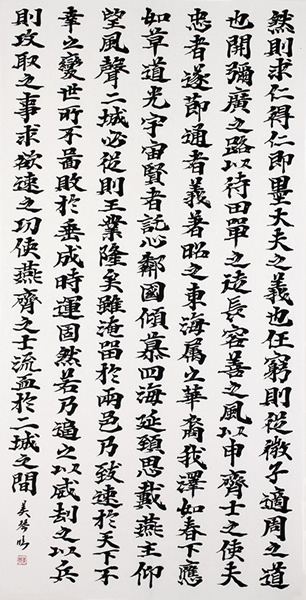 然則求仁得仁即墨大夫之義也任窮則從微子適周之道
也開彌廣之路以待田單之徒長容善之風以申齊士之使夫
忠者遂節通者義著昭之東海屬之華裔我澤如春下應
如草道光宇宙賢者託心鄰國傾慕四海延頸思戴燕主仰
望風聲二城必從則王業隆矣雖淹留於兩邑乃致速於天下不
幸之變世所不啚敗於垂成時運固然若乃逼之以威劫之以兵
則攻取之事求欲速之功使燕齊之士流血於二城之間